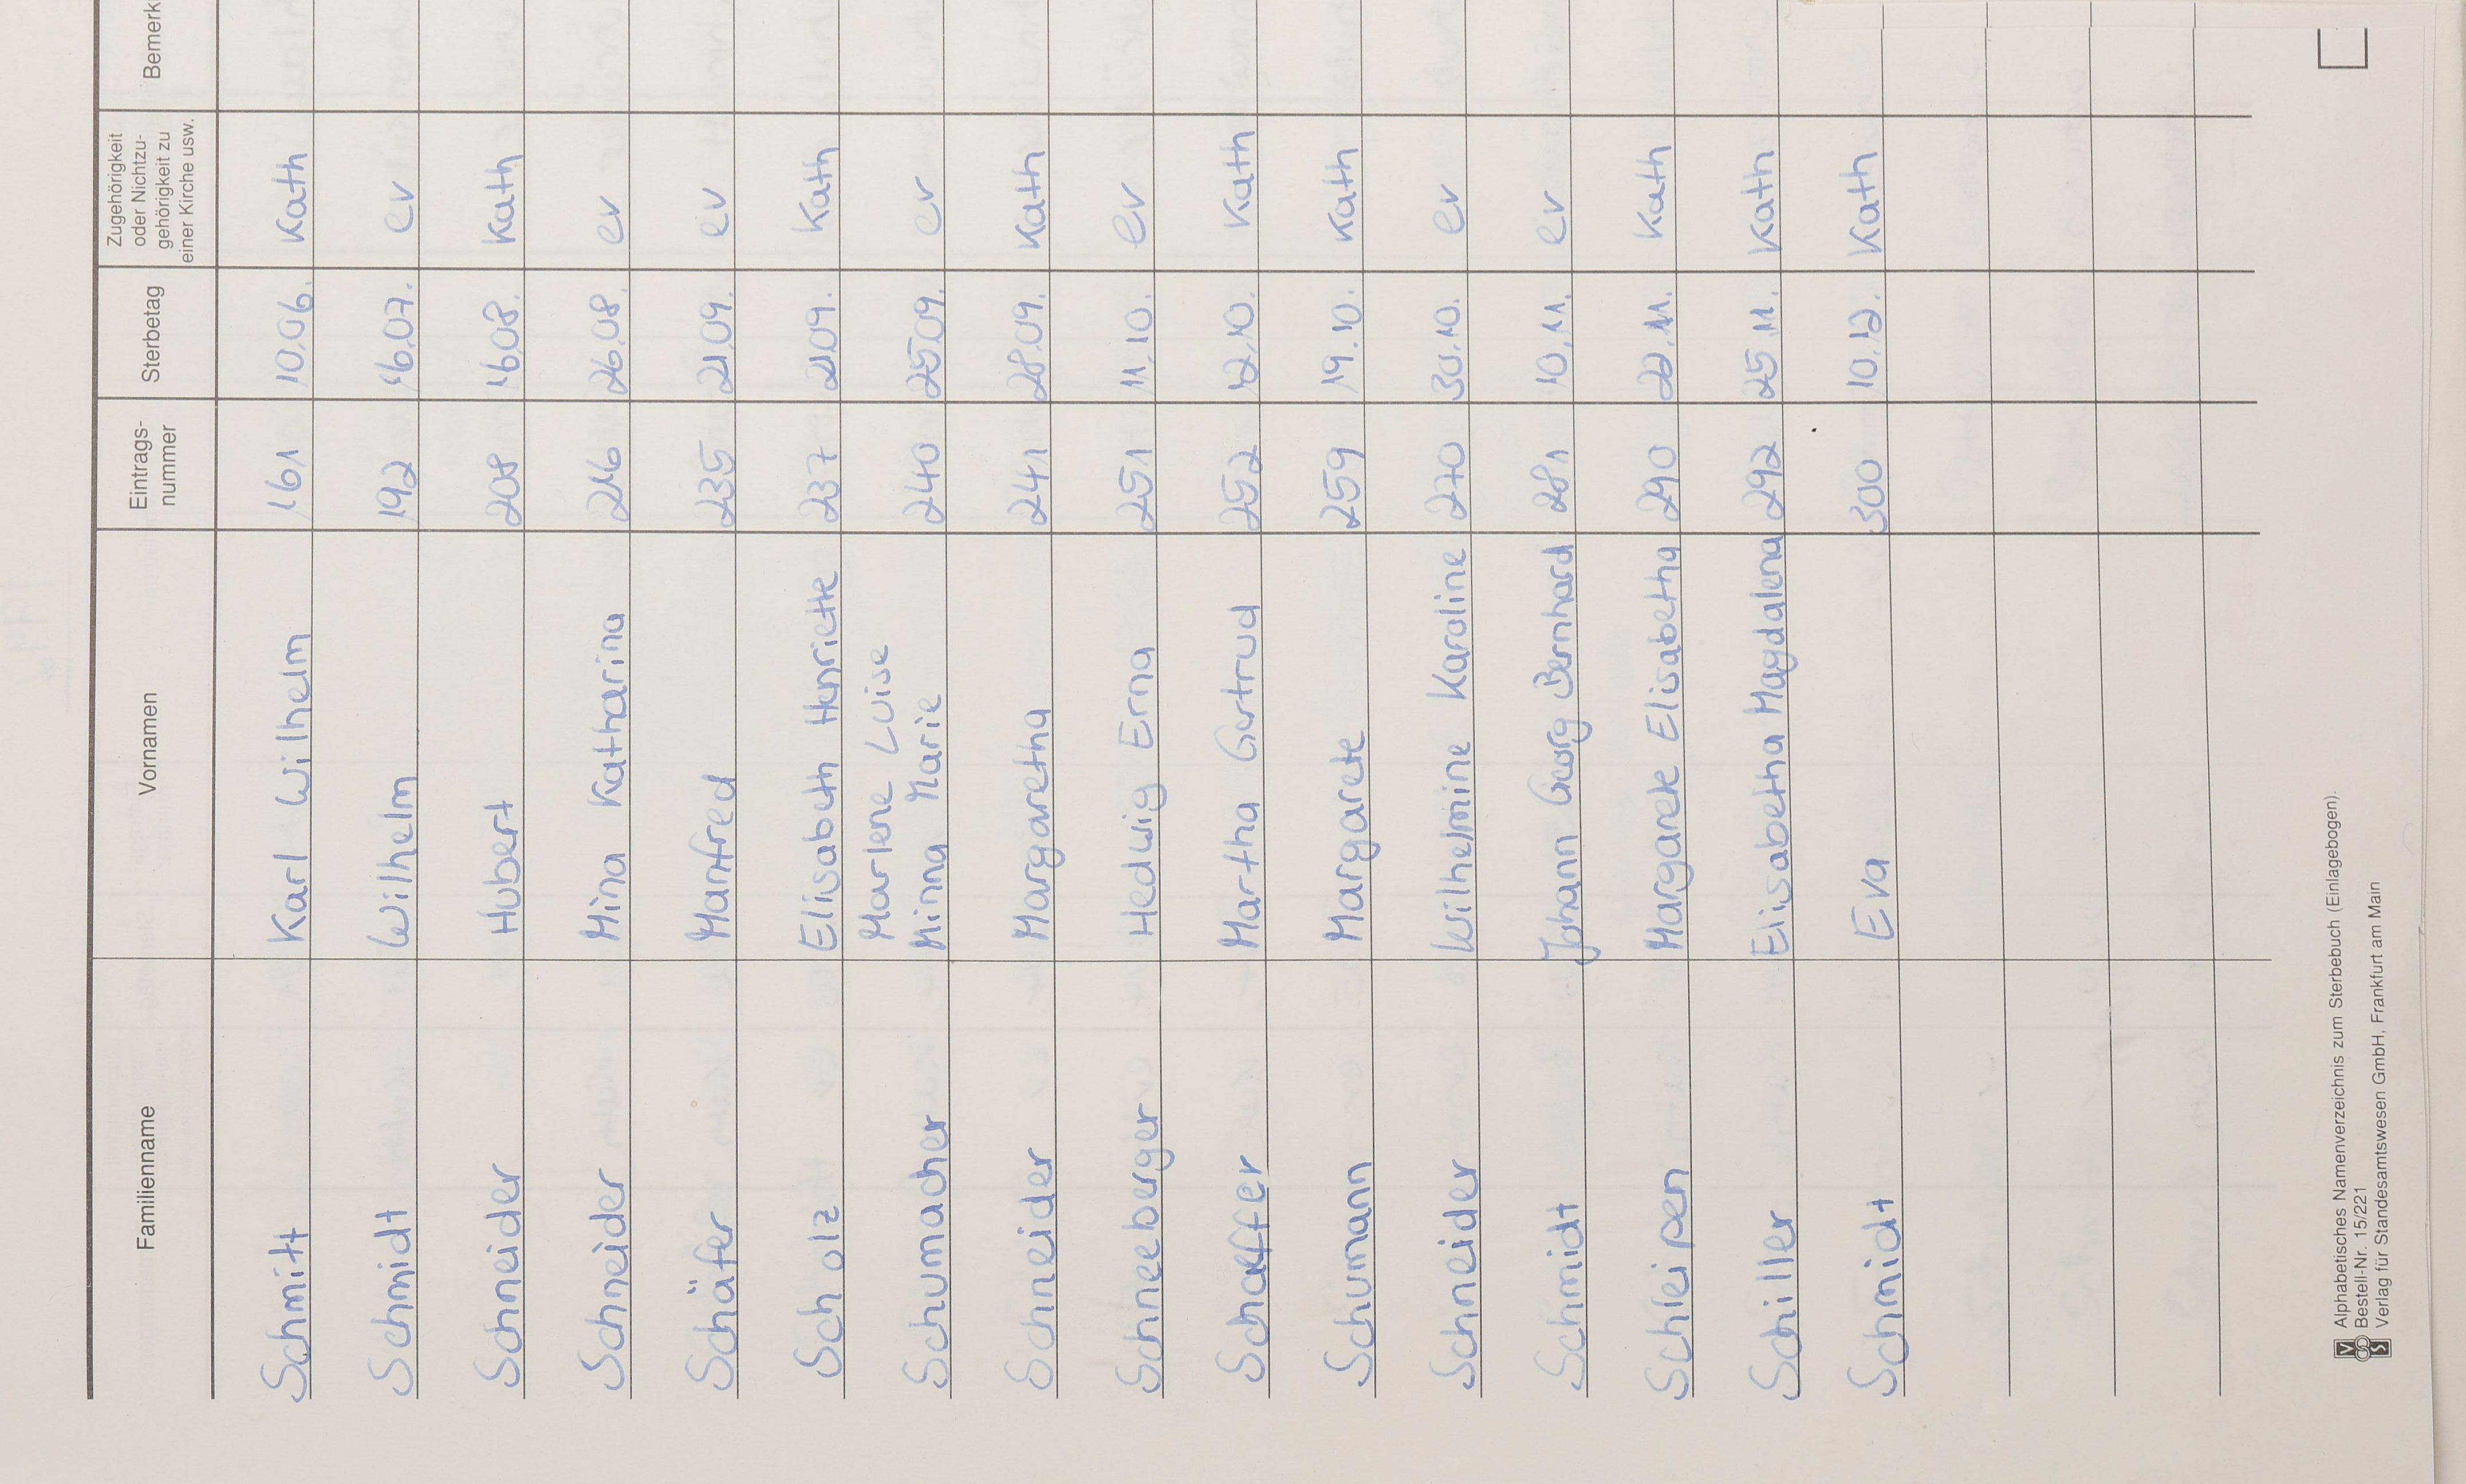 Familienname Vornamen Eintrags-nummer Sterbetag Zugehörigkeit oder Nichtzu-gehörigkeit zu einer Kirche usw. Bemerk
Schmitt Karl Wilhelm 161 10.06. Kath
Schmidt Wilhelm 192 16.07. ev
Schneider Hubert 208 16.08. Kath
Schneider Mina Katharina 216 26.08. ev
Schäfer Manfred 235 21.09. ev
Scholz Elisabeth Henriette 237 21.09. Kath
Marlene Luise
Schumacher Minna Marie 240 25.09. ev
Schneider Margaretha 241 28.09. Kath
Schneeberger Hedwig Erna 251 11.10. ev
Schaeffer Martha Gertrud 252 12.10. Kath
Schumann Margarete 259 19.10. Kath
Schneider Wilhelmine Karoline 270 30.10. ev
Schmidt Johann Georg Bernhard 281 10.11. ev
Schleipen Margarete Elisabetha 290 22.11. Kath
Schiller Elisabetha Magdalena 292 25.11. Kath
Schmidt Eva 300 10.12. Kath
Alphabetisches Namenverzeichnis zum Sterbebuch (Einlagebogen).
Bestell-Nr. 15/221
Verlag für Standesamtswesen GmbH, Frankfurt am Main